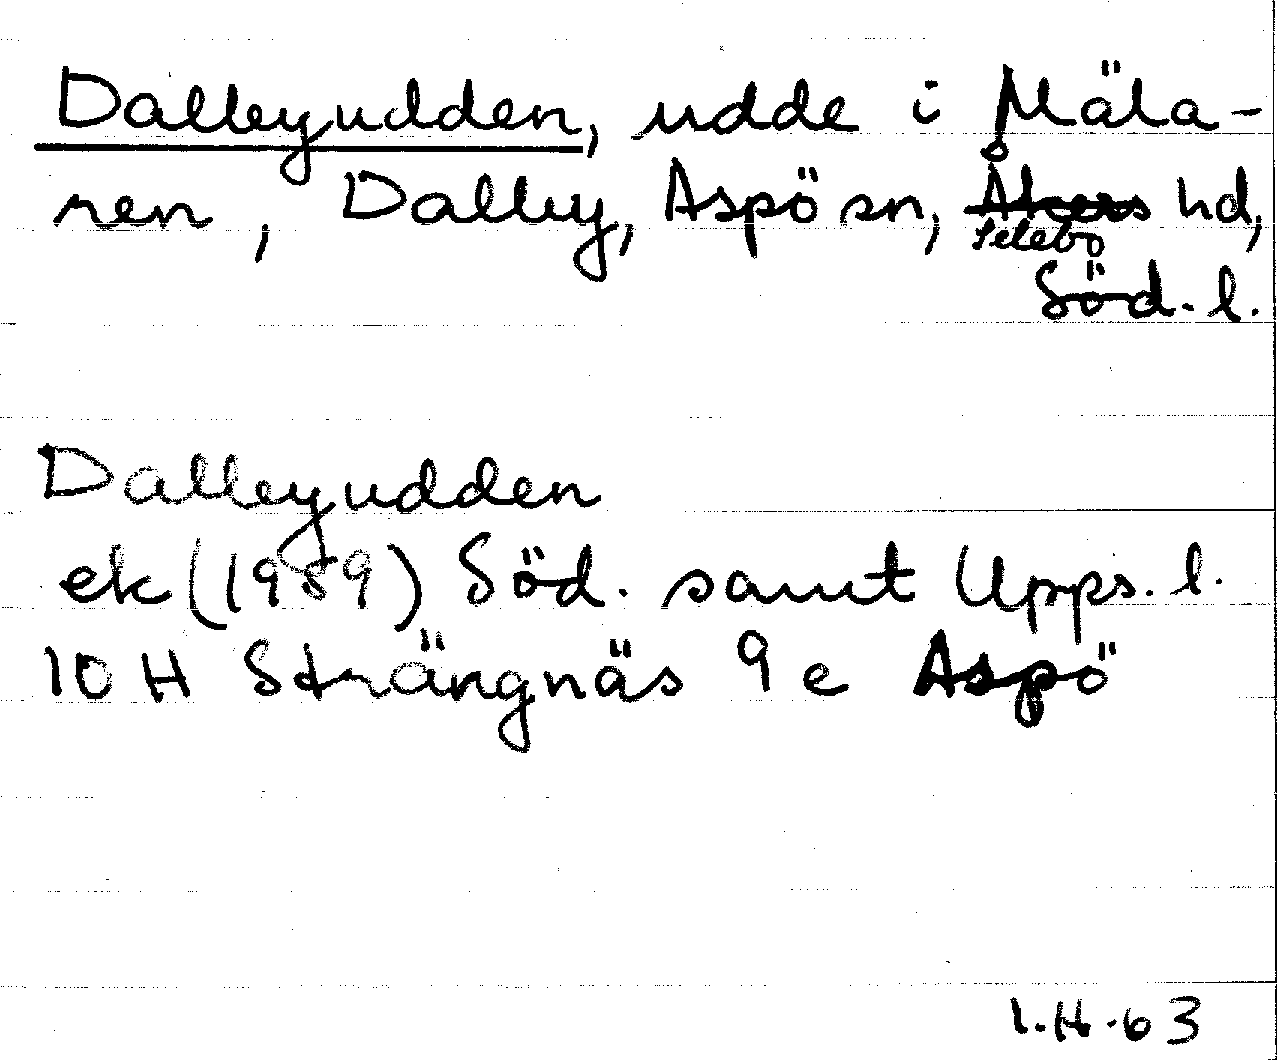 Dalbyudden, udde i Mäla-
ren, Dalby, Aspö sn, Åkers hd,
Selebo
Söd. l.
Dalbyudden
ek (1959) Söd. samt Upps. l.
10 H Strängnäs 9 e Aspö
I.H. 63